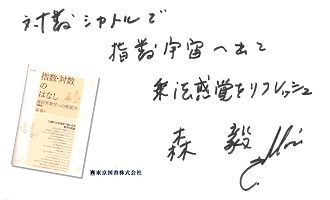 対数シャトルで
指数宇宙へ出て
乗法感覚をリフレッシュ
森 毅
指数・対数
の
はなし
森 毅
東京図書株式会社